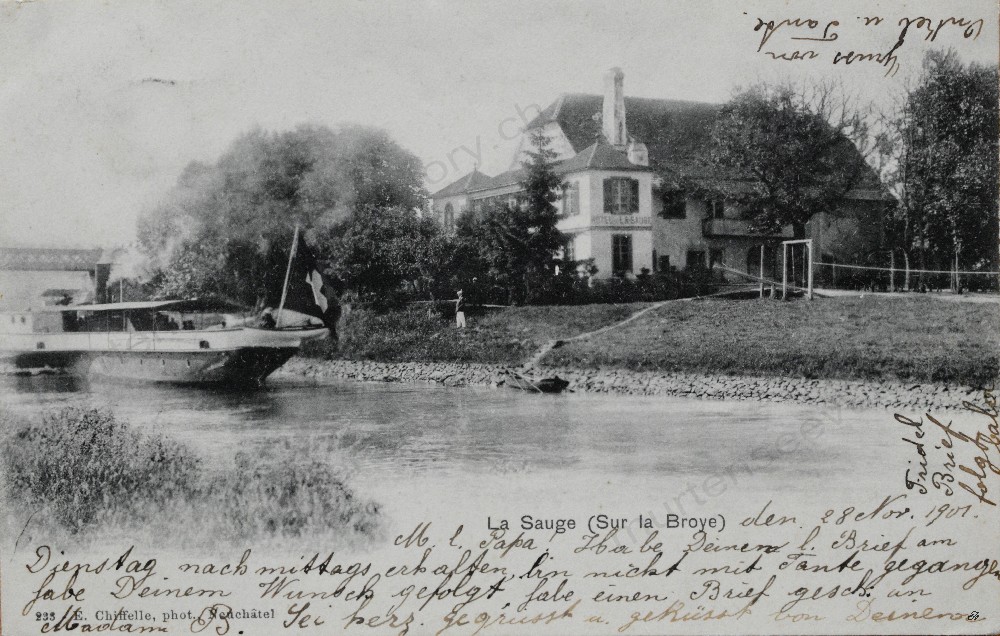 Gruss von
Onkel u. Tante
HOTEL DE LA SAUGE
Fridel
Brief
folgt
La Sauge (Sur la Broye) den 28 Nov. 1901.
M. l. Papa! Habe Deinen l. Brief am
Dienstag nachmittags erhalten, bin nicht mit Tante gegangen
habe Deinem Wunsch gefolgt habe einen Brief gesch. an
Madam B. Sei herz. gegrüsst u. geküsst von Deinem
233 E. Chiffelle, phot., Neuchâtel